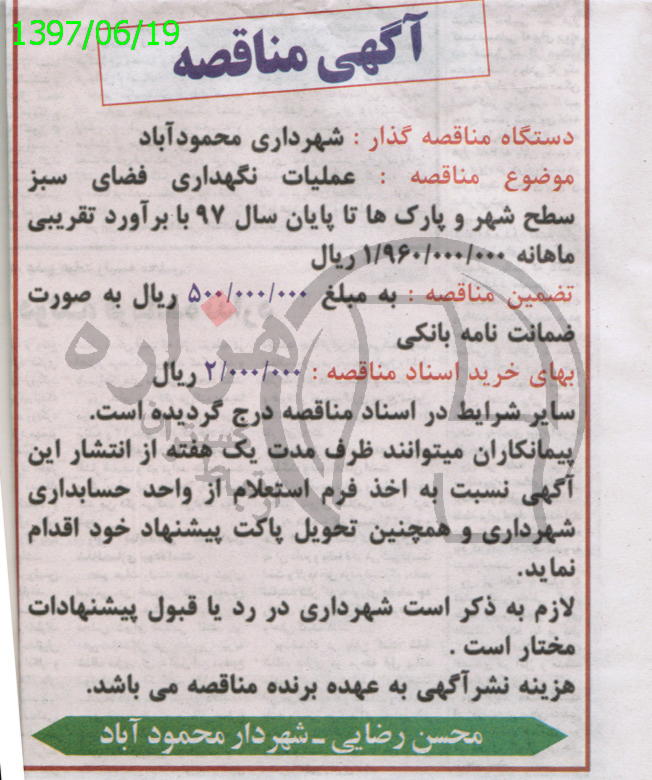 1397/06/19
آگهی مناقصه
دستگاه مناقصه گذار : شهرداری محمودآباد
موضوع مناقصه : عملیات نگهداری فضای سبز
سطح شهر و پارک ها تا پایان سال ۹۷ با برآورد تقریبی
ماهانه ۱/۹۶۰/۰۰۰/۰۰۰ ریال
تضمین مناقصه : به مبلغ ۵۰۰/۰۰۰/۰۰۰ ریال به صورت
ضمانت نامه بانکی
بهای خرید اسناد مناقصه : ۲/۰۰۰/۰۰۰ ریال
سایر شرایط در اسناد مناقصه درج گردیده است.
پیمانکاران میتوانند ظرف مدت یک هفته از انتشار این
آگهی نسبت به اخذ فرم استعلام از واحد حسابداری
شهرداری و همچنین تحویل پاکت پیشنهاد خود اقدام
نماید.
لازم به ذکر است شهرداری در رد یا قبول پیشنهادات
مختار است .
هزینه نشرآگهی به عهده برنده مناقصه می باشد.
محسن رضایی ـ شهردار محمود آباد
هزاره